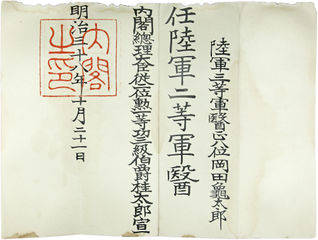 陸軍三等軍醫正八位岡田龜太郎
任陸軍二等軍醫
内閣總理大臣從二位勲一等功三級伯爵桂太郎宣
明治三十八年十月二十一日
内閣之印